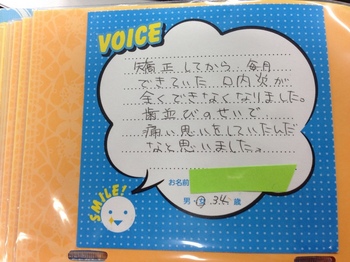 VOICE
矯正してから、毎月
できていた口内炎が
全くできなくなりました。
歯並びのせいで
痛い思いをしていたんだ
なと思いました。
お名前
男・女 34 歳
SMILE!